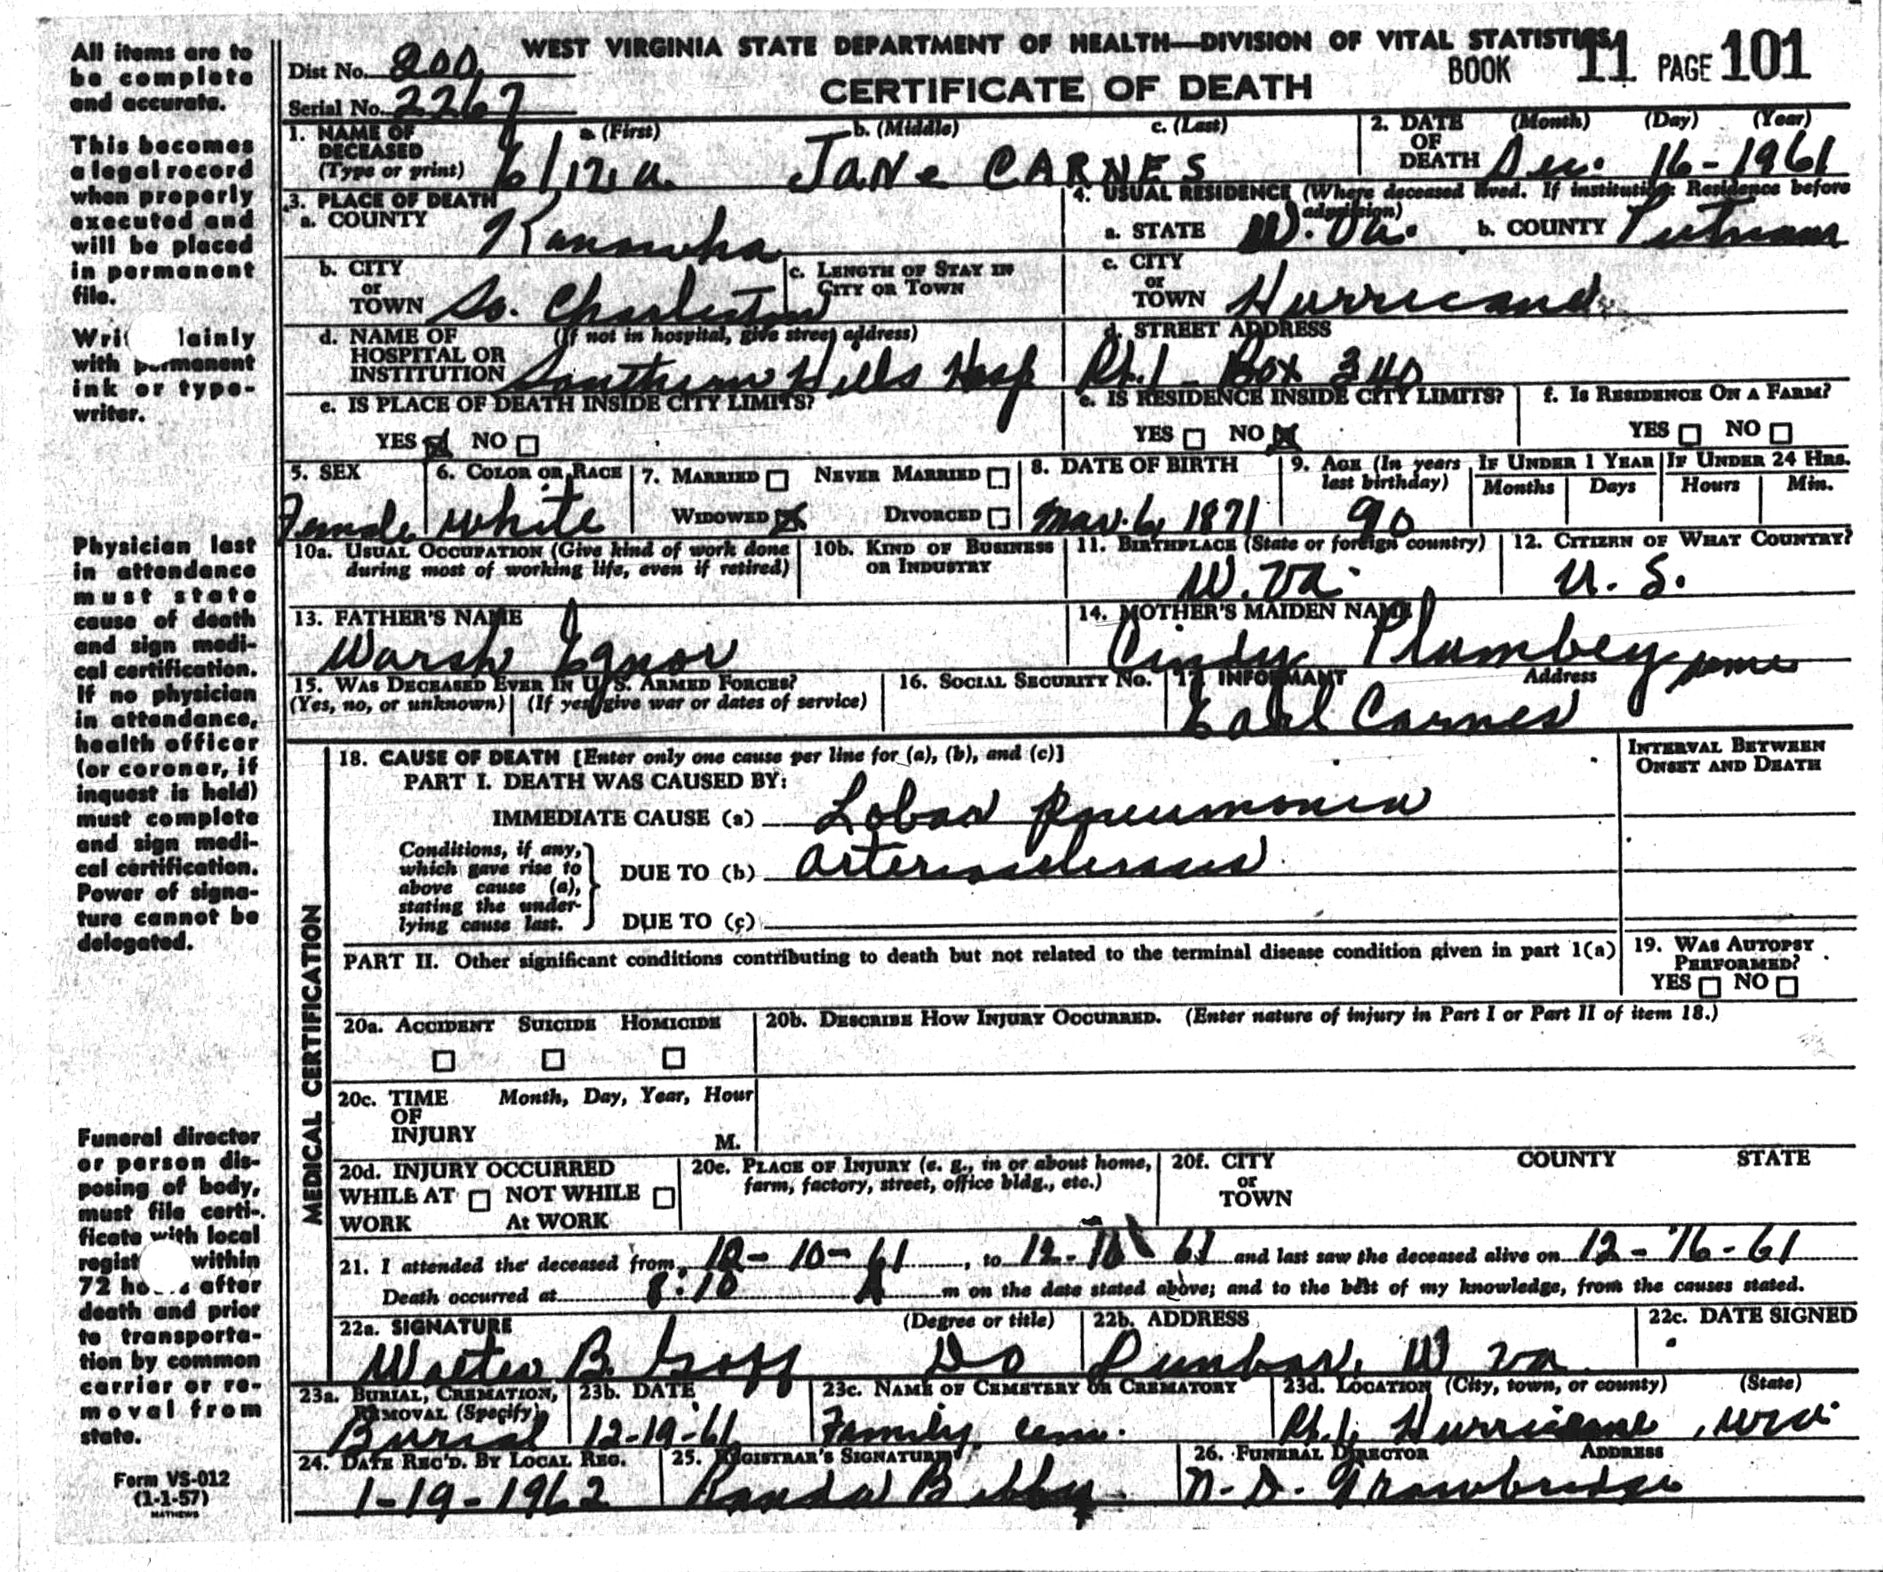 WEST VIRGINIA STATE DEPARTMENT OF HEALTH—DIVISION OF VITAL STATISTICS
BOOK 11 PAGE 101
CERTIFICATE OF DEATH
Dist No. 200
Serial No. 2267
1. NAME OF DECEASED (Type or print) a. (First) b. (Middle) c. (Last)
Eliza Jane CARNES
2. DATE OF DEATH (Month) (Day) (Year)
Dec. 16-1961
3. PLACE OF DEATH
a. COUNTY Kanawha
4. USUAL RESIDENCE (Where deceased lived. If institution: Residence before admission)
a. STATE W. Va. b. COUNTY Putnam
b. CITY or TOWN So. Charleston
c. LENGTH OF STAY IN CITY OR TOWN
c. CITY or TOWN Hurricane
d. NAME OF HOSPITAL OR INSTITUTION (If not in hospital, give street address)
Southern Hills Hosp
d. STREET ADDRESS
Rt. 1 - Box 340
e. IS PLACE OF DEATH INSIDE CITY LIMITS?
YES NO
e. IS RESIDENCE INSIDE CITY LIMITS?
YES NO
f. IS RESIDENCE ON A FARM?
YES NO
5. SEX
Female
6. COLOR OR RACE
White
7. MARRIED NEVER MARRIED
WIDOWED DIVORCED
8. DATE OF BIRTH
Mar. 6, 1871
9. AGE (In years last birthday)
90
IF UNDER 1 YEAR
Months Days
IF UNDER 24 HRS.
Hours Min.
10a. USUAL OCCUPATION (Give kind of work done during most of working life, even if retired)
10b. KIND OF BUSINESS OR INDUSTRY
11. BIRTHPLACE (State or foreign country)
W. Va.
12. CITIZEN OF WHAT COUNTRY?
U. S.
13. FATHER'S NAME
Warsh Egnor
14. MOTHER'S MAIDEN NAME
Cindy Plumbey
15. WAS DECEASED EVER IN U. S. ARMED FORCES?
(Yes, no, or unknown) (If yes, give war or dates of service)
16. SOCIAL SECURITY NO.
17. INFORMANT Address
Earl Carnes same
MEDICAL CERTIFICATION
18. CAUSE OF DEATH [Enter only one cause per line for (a), (b), and (c)]
INTERVAL BETWEEN ONSET AND DEATH
PART I. DEATH WAS CAUSED BY:
IMMEDIATE CAUSE (a) Lobar Pneumonia
Conditions, if any, which gave rise to above cause (a), stating the underlying cause last.
DUE TO (b) Arteriosclerosis
DUE TO (c)
PART II. Other significant conditions contributing to death but not related to the terminal disease condition given in part 1(a)
19. WAS AUTOPSY PERFORMED?
YES NO
20a. ACCIDENT SUICIDE HOMICIDE
20b. DESCRIBE HOW INJURY OCCURRED. (Enter nature of injury in Part I or Part II of item 18.)
20c. TIME OF INJURY Month, Day, Year, Hour
M.
20d. INJURY OCCURRED
WHILE AT WORK NOT WHILE At WORK
20e. PLACE OF INJURY (e. g., in or about home, farm, factory, street, office bldg., etc.)
20f. CITY or TOWN COUNTY STATE
21. I attended the deceased from 12-10-61, to 12-16 61 and last saw the deceased alive on 12-16-61
Death occurred at 8:10 A m on the date stated above; and to the best of my knowledge, from the causes stated.
22a. SIGNATURE (Degree or title)
Walter B. Goff DO
22b. ADDRESS
Dunbar, W Va
22c. DATE SIGNED
23a. BURIAL, CREMATION, REMOVAL (Specify)
Burial
23b. DATE
12-19-61
23c. NAME OF CEMETERY OR CREMATORY
Family cem.
23d. LOCATION (City, town, or county) (State)
Rt. 1, Hurricane, W Va
24. DATE REC'D. BY LOCAL REG.
1-19-1962
25. REGISTRAR'S SIGNATURE
26. FUNERAL DIRECTOR ADDRESS
N. D.
All items are to
be complete
and accurate.
This becomes
a legal record
when properly
executed and
will be placed
in permanent
file.
lainly
with permanent
ink or type-
writer.
Physician last
in attendance
must state
cause of death
and sign medi-
cal certification.
If no physician
in attendance,
health officer
(or coroner, if
inquest is held)
must complete
and sign medi-
cal certification.
Power of signa-
ture cannot be
delegated.
Funeral director
or person dis-
posing of body,
must file certi-
ficate with local
regist within
72 ho s after
death and prior
to transporta-
tion by common
carrier or re-
moval from
state.
Form VS-012
(1-1-57)
MATHEWS